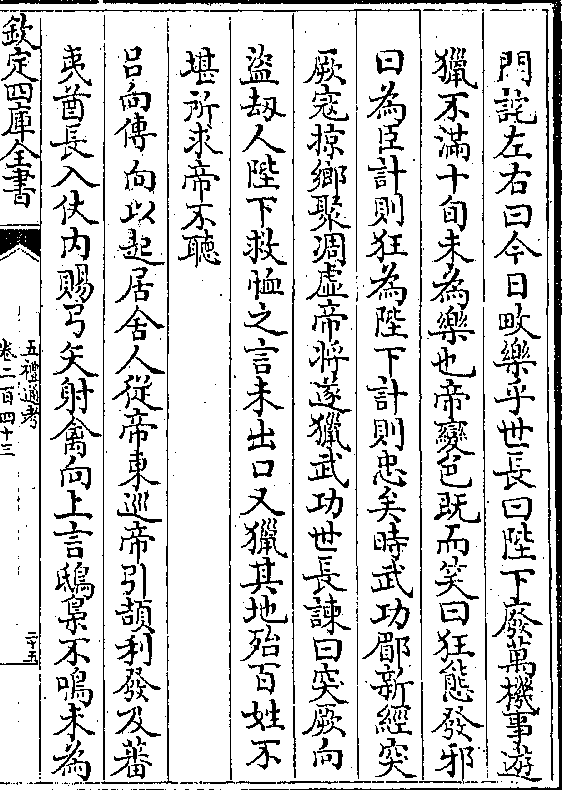 門詫左右曰今日畋樂乎世長曰陛下廢萬機事遊
獵不滿十旬未為樂也帝變色既而笑曰狂態發邪
曰為臣計則狂為陛下計則忠矣時武功郿新經突
厥寇掠鄉聚凋虛帝将遂獵武功世長諫曰突厥向
盜刼人陛下救恤之言未出口又獵其地殆百姓不
堪所求帝不聽
吕向傳向以起居舍人從帝東巡帝引頡利發及蕃
夷酋長入仗内賜弓矢射禽向上言鴟梟不鳴未為
欽定四庫全書
五禮通考
卷二百四十三
二十五